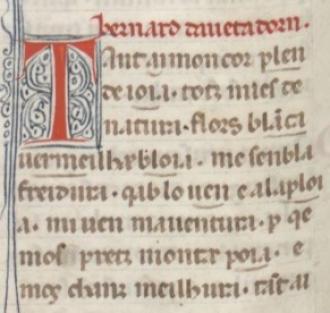 bernard daventadorn.
Tant ai mon cor plen
de ioia. totz mi es de
natura. flors blāca
vermeilh e bloia. me senbla
freidura. q̄ ab lo ven e al a ploi
a. mi ven maventura. p qe
mos pretz montæ poia. e
moz chanz meilhura. tāt ai